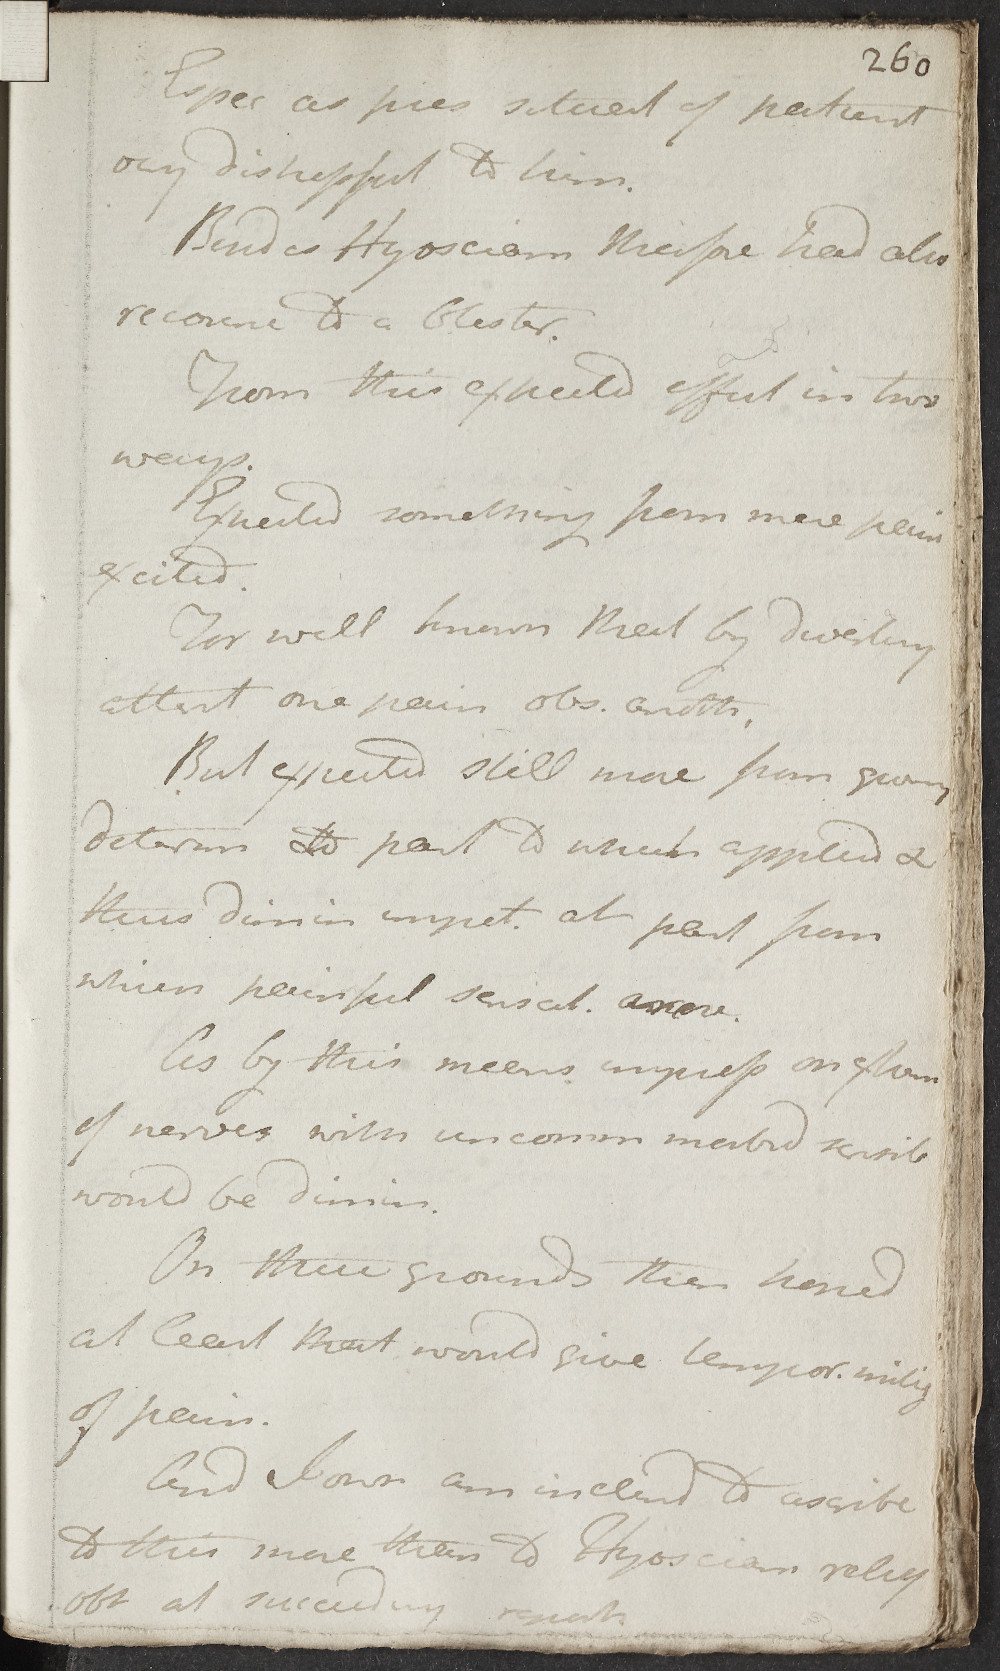 260
Espec as pres situat of patient
very distressful to him.
Besides Hyosciam therefore had also
recourse to a blister.
From this expected effect in two
ways.
Expected something from mere pain
excited.
For well known that by diverting
attent one pain obs. anoth.
But expected still more from giving
determ to part to which applied &
thus dimin impet. at part from
which painful sensat. arose.
As by this means impress on extrem
of nerves with uncomm morbid sensib
would be dimin.
On these grounds then hoped
at least that would give tempor. mitig
of pain.
And I own am inclend to ascribe
to this more than to Hyosciam relief
obt at succeeding report